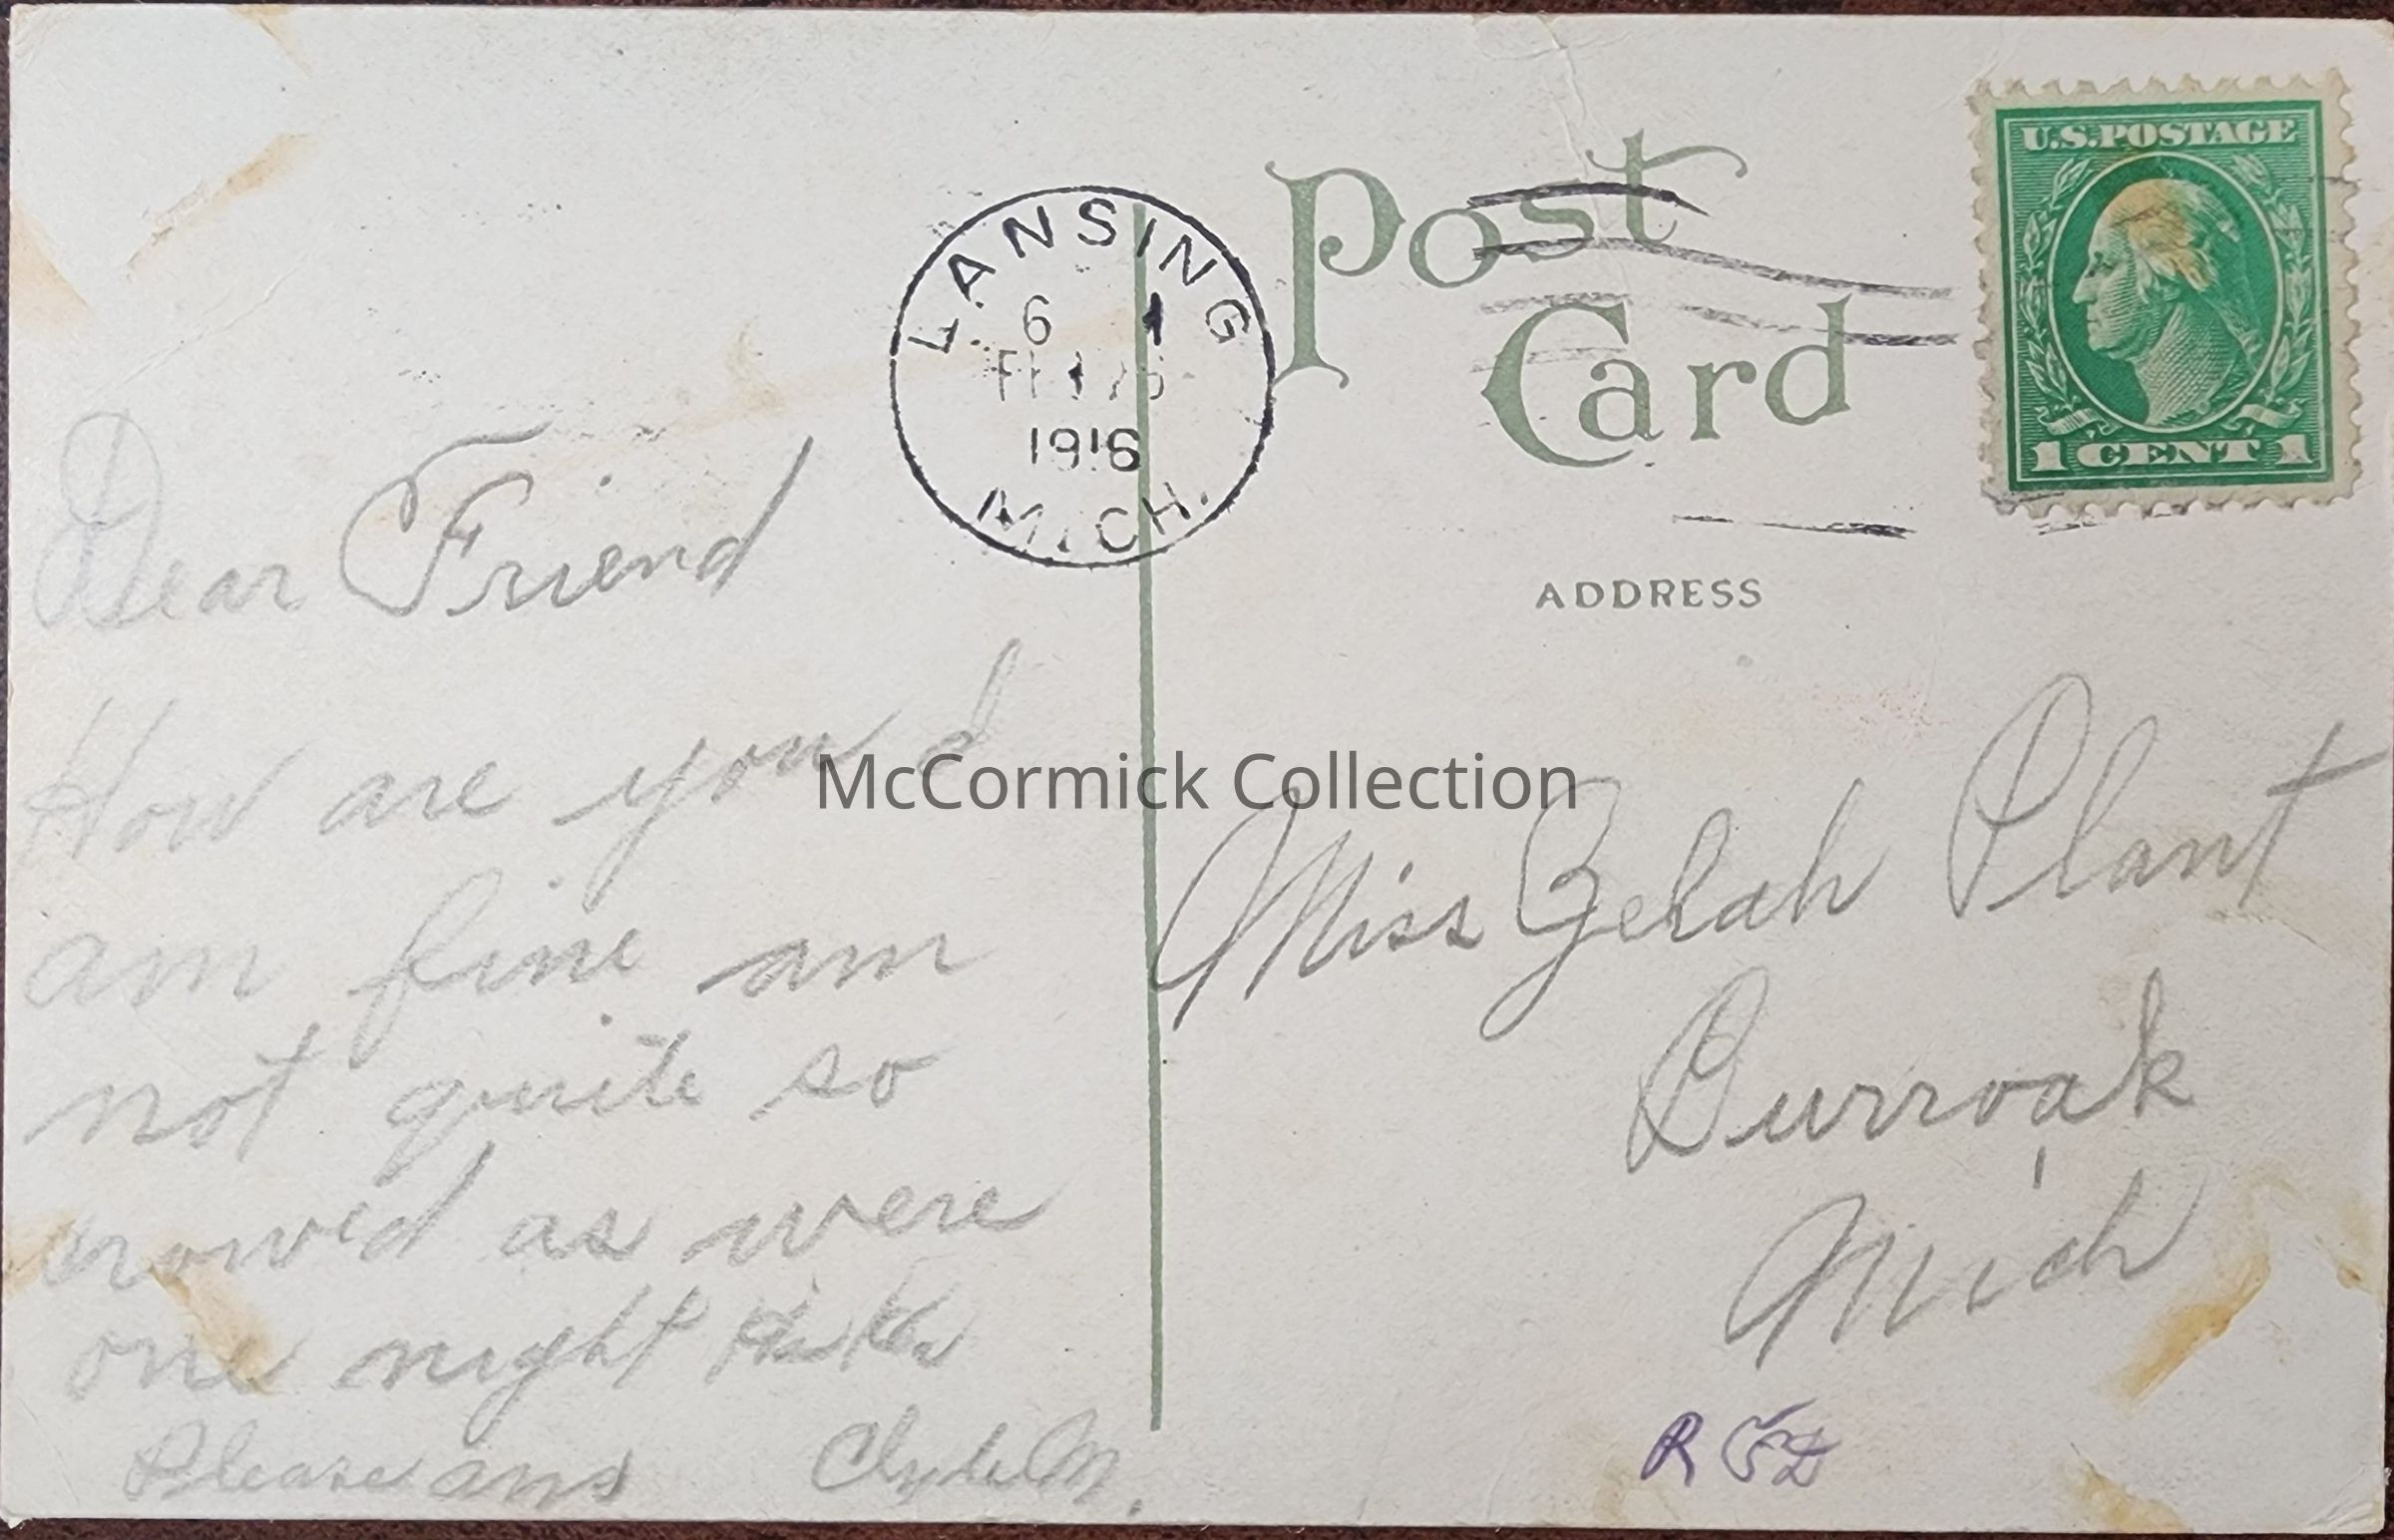 Post
Card
U.S. POSTAGE
1 CENT 1
LANSING
6 1
FEB
1916
MICH.
ADDRESS
McCormick Collection
Dear Friend
How are you I
am fine am
not quite so
crowd as were
one night
Please ans Clyde M.
Miss Zelah Plant
Burroak
Mich
R F D